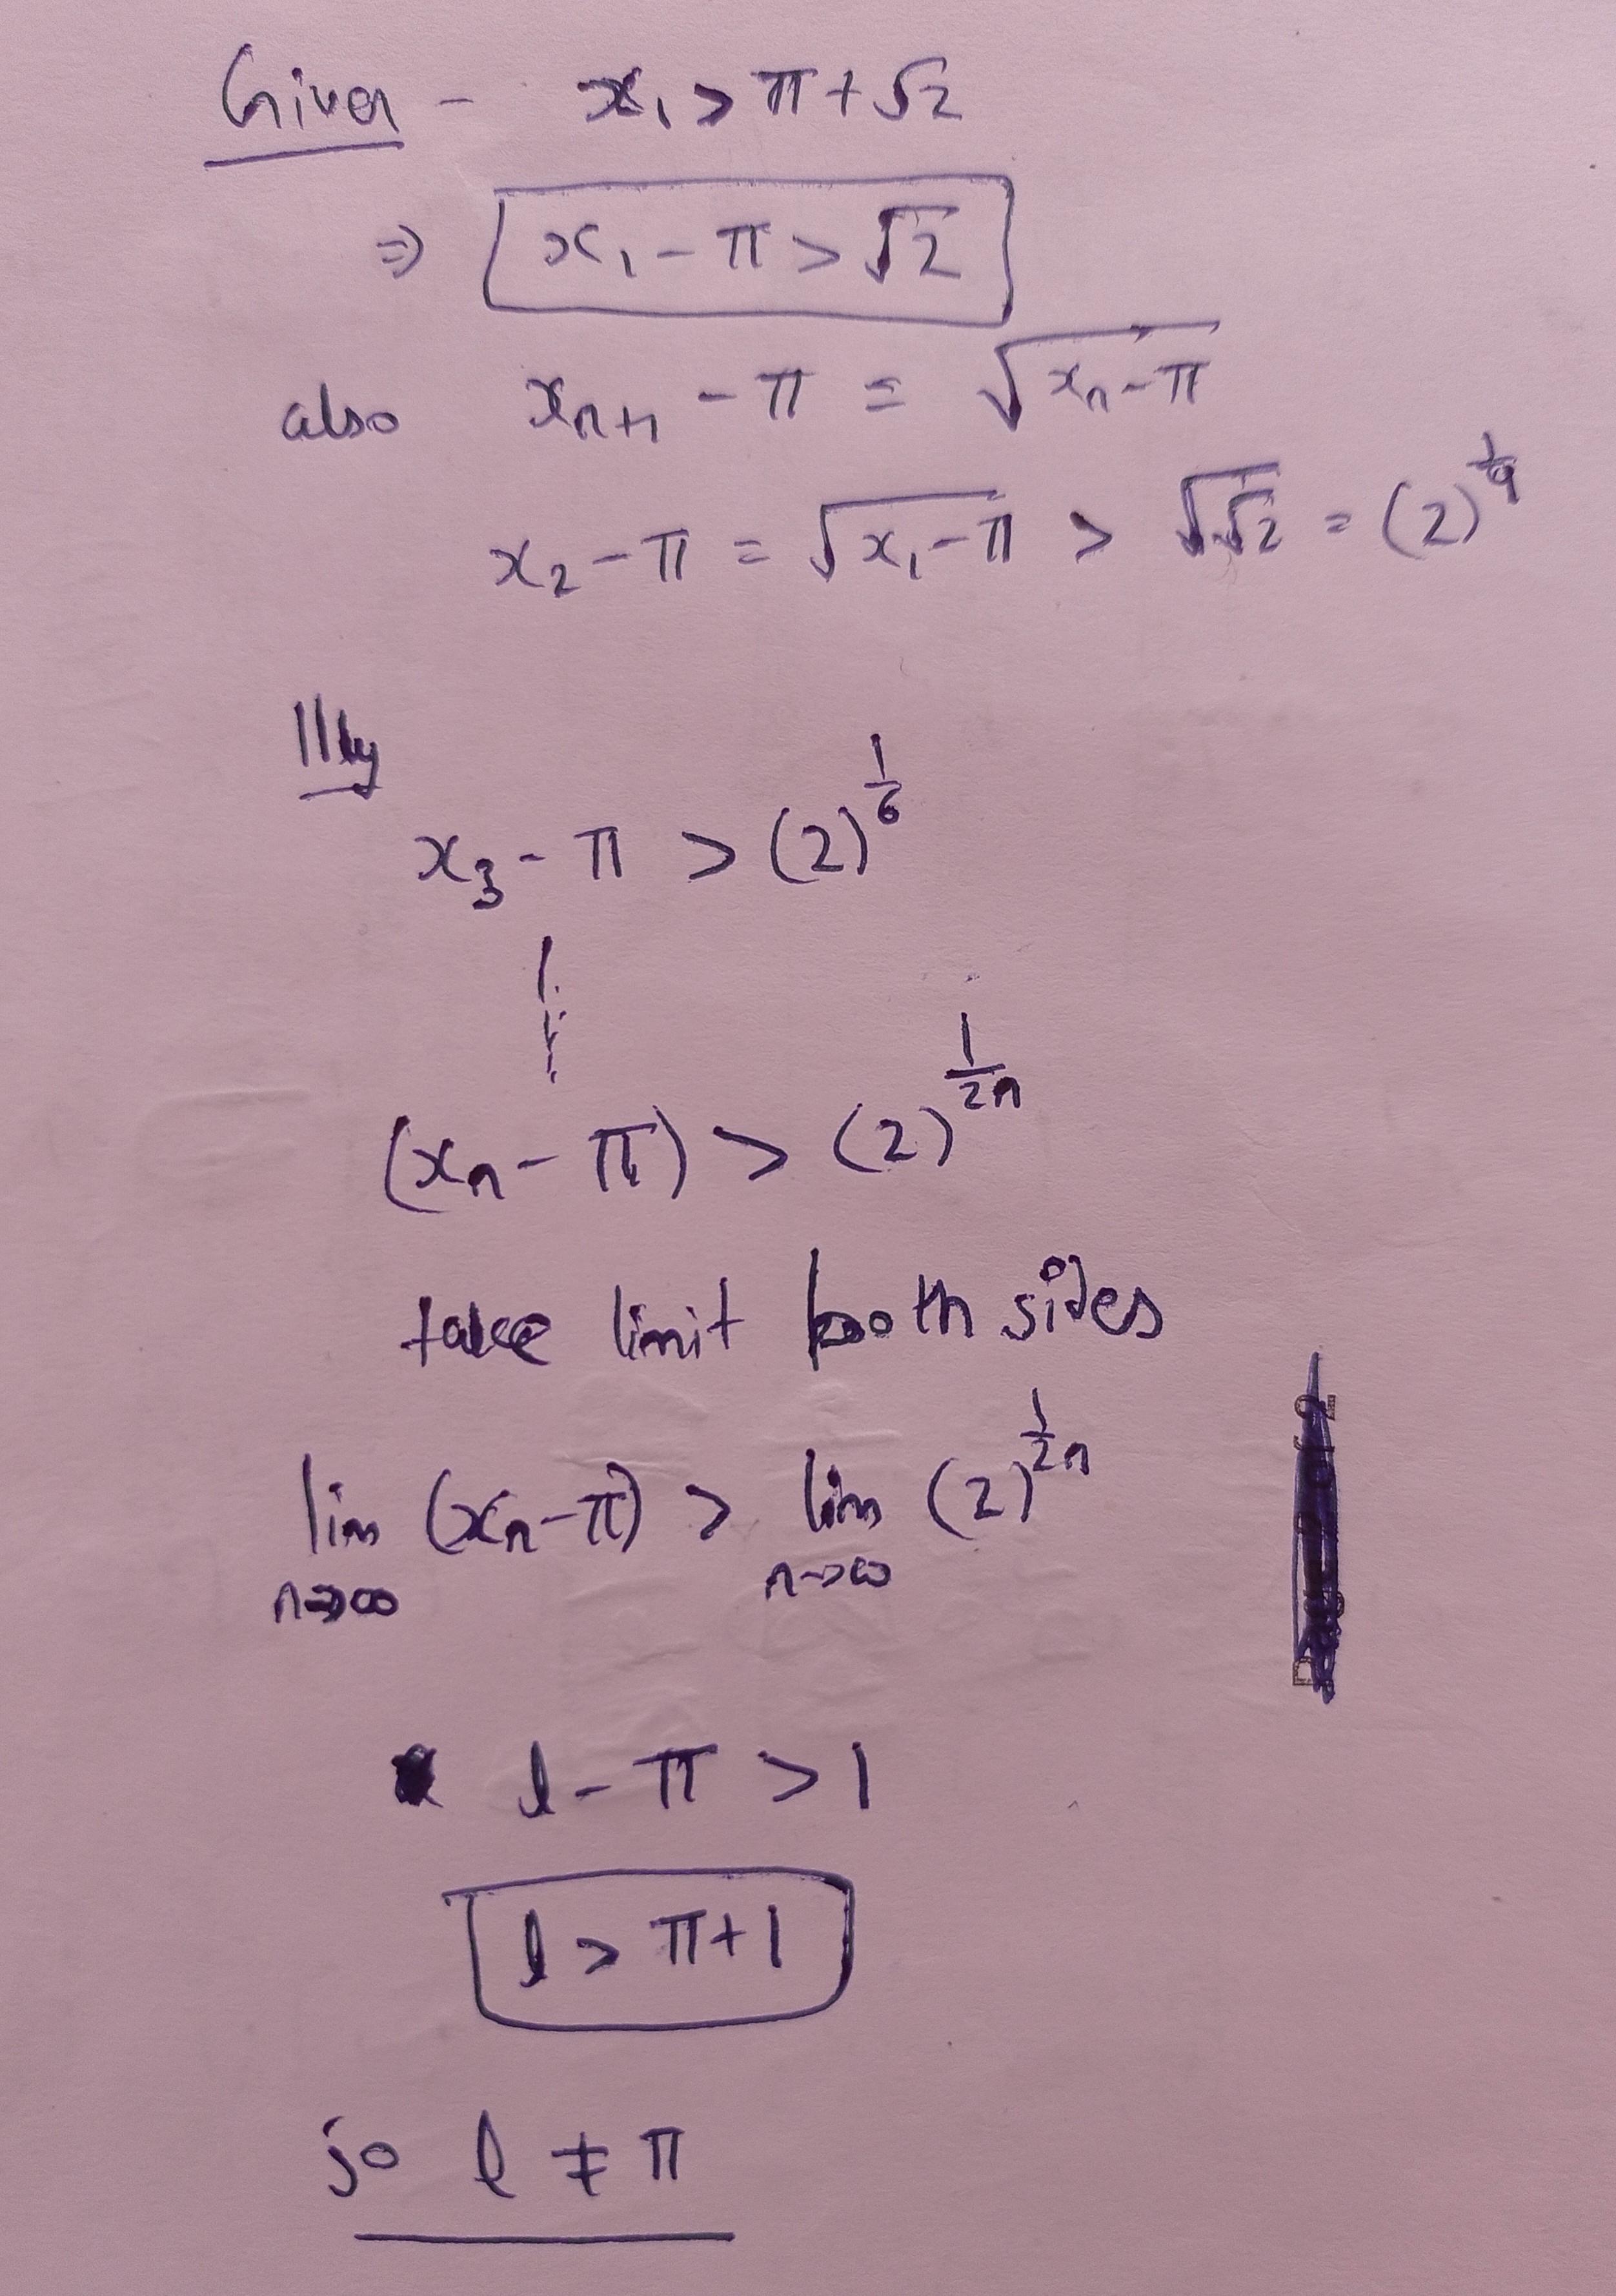 Given - x₁ > π + √2
⇒ x₁ - π > √2
also xₙ₊₁ - π = √(xₙ - π)
x₂ - π = √(x₁ - π) > √√2 = (2)^(1/4)
|||ly
x₃ - π > (2)^(1/6)
(xₙ - π) > (2)^(1/2n)
take limit both sides
lim (xₙ - π) > lim (2)^(1/2n)
n→∞ n→∞
l - π > 1
l > π + 1
so l ≠ π